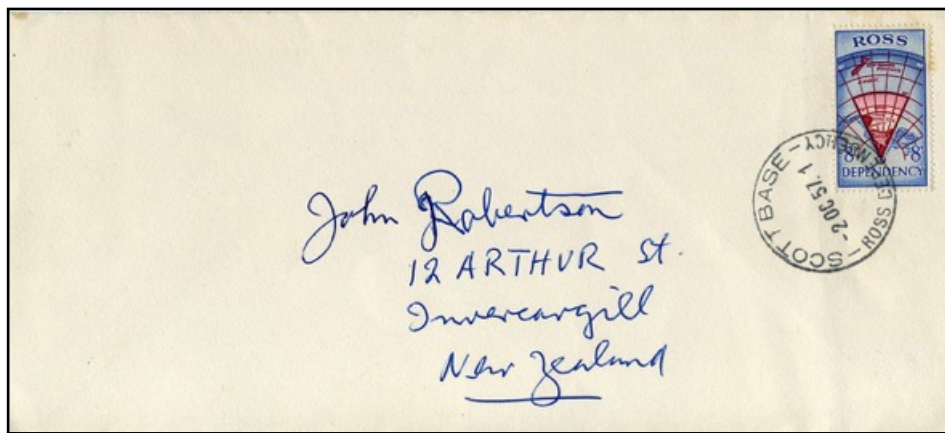 ROSS
8ᴰ 8ᴰ
DEPENDENCY
SCOTT BASE - ROSS DEPENDENCY -
-2 OC 57. 1
John Robertson
12 ARTHUR St.
Invercargill
New Zealand